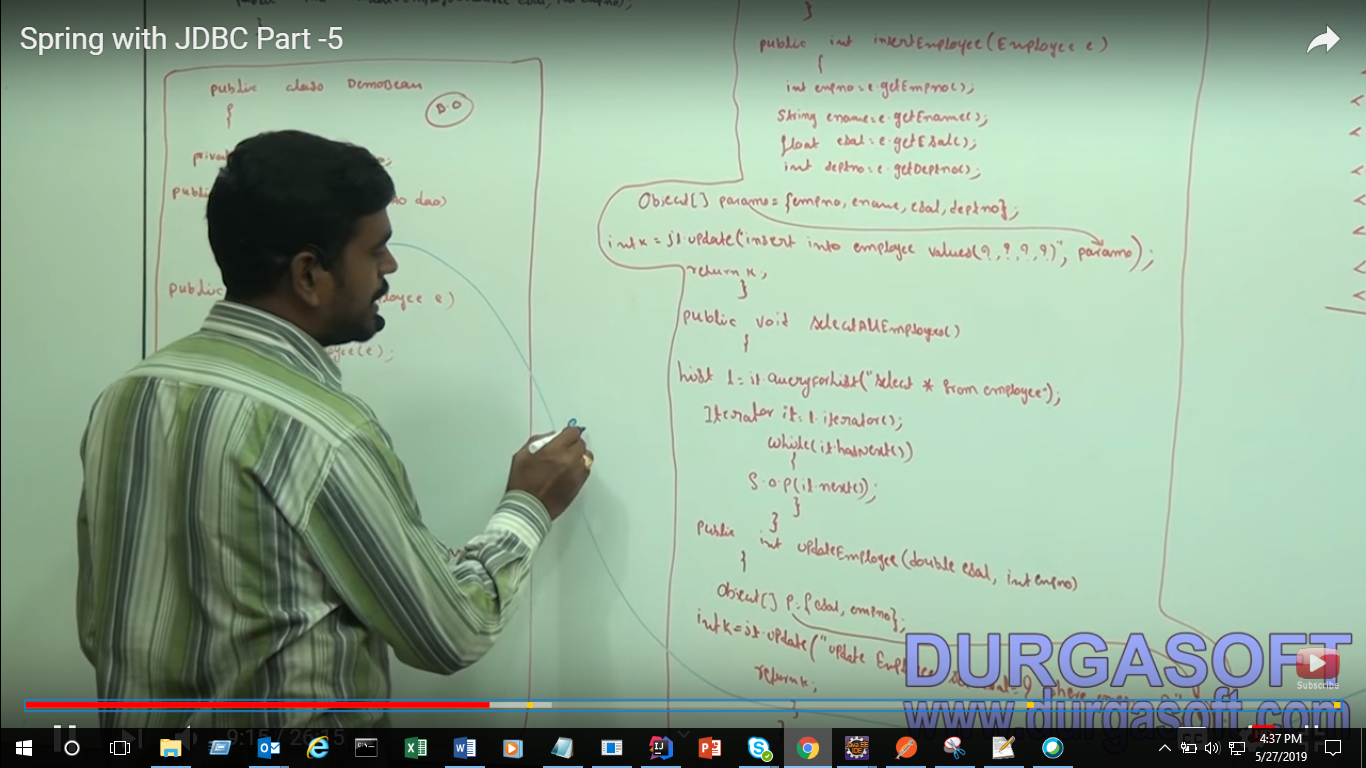 Spring with JDBC Part -5
public class DemoBean
B.O
{
public
dao)
public
e)
(e);
}
public int insertEmployee(Employee e)
{
int empno=e.getEmpno();
String ename=e.getEname();
float esal=e.getEsal();
int deptno=e.getDeptno();
Object[] params={empno, ename, esal, deptno};
int k=jt.update("insert into employee values(?,?,?,?)", params);
return k;
}
public void selectAllEmployees()
{
List l=jt.queryForList("select * from employee");
Iterator it=l.iterator();
while(it.hasNext())
{
S.o.p(it.next());
}
}
public int updateEmployee(double esal, int empno)
{
Object[] p={esal, empno};
int k=jt.update("update
return k;
}
DURGASOFT
www.durgasoft.com
Subscribe
9:15 / 26:15
4:37 PM
5/27/2019